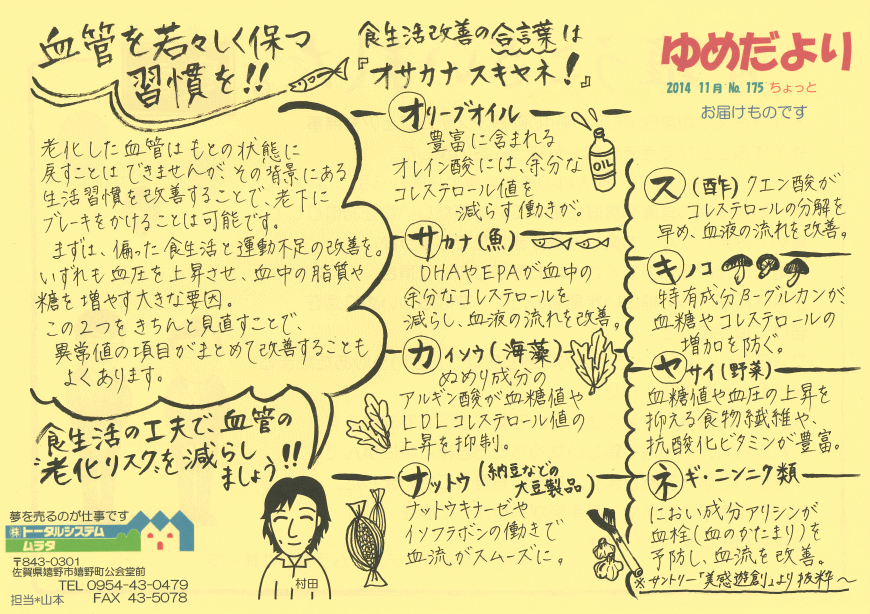 血管を若々しく保つ
習慣を!!
食生活改善の合言葉は
『オサカナスキヤネ!』
ゆめだより
2014 11月 No. 175 ちょっと
お届けものです
老化した血管はもとの状態に
戻すことはできませんが、その背景にある
生活習慣を改善することで、老下に
ブレーキをかけることは可能です。
まずは、偏った食生活と運動不足の改善を。
いずれも血圧を上昇させ、血中の脂質や
糖を増やす大きな要因。
この2つをきちんと見直すことで、
異常値の項目がまとめて改善することも
よくあります。
食生活の工夫で血管の
"老化リスク"を減らし
ましょう!!
オリーブオイル
豊富に含まれる
オレイン酸には、余分な
コレステロール値を
減らす働きが。
OIL
サカナ(魚)
DHAやEPAが血中の
余分なコレステロールを
減らし、血液の流れを改善。
カイソウ(海藻)
ぬめり成分の
アルギン酸が血糖値や
LDLコレステロール値の
上昇を抑制。
ナットウ(納豆などの
大豆製品)
ナットウキナーゼや
イソフラボンの働きで
血流がスムーズに。
ス(酢)クエン酸が
コレステロールの分解を
早め、血液の流れを改善。
キノコ
特有成分β-グルカンが、
血糖やコレステロールの
増加を防ぐ。
ヤサイ(野菜)
血糖値や血圧の上昇を
抑える食物繊維や、
抗酸化ビタミンが豊富。
ネギ・ニンニク類
におい成分アリシンが
血栓(血のかたまり)を
予防し、血流を改善。
※サントリー「美感遊創」より抜粋〜
夢を売るのが仕事です
㈱トータルシステム
ムラタ
〒843-0301
佐賀県嬉野市嬉野町公会堂前
TEL 0954-43-0479
担当*山本 FAX 43-5078
村田